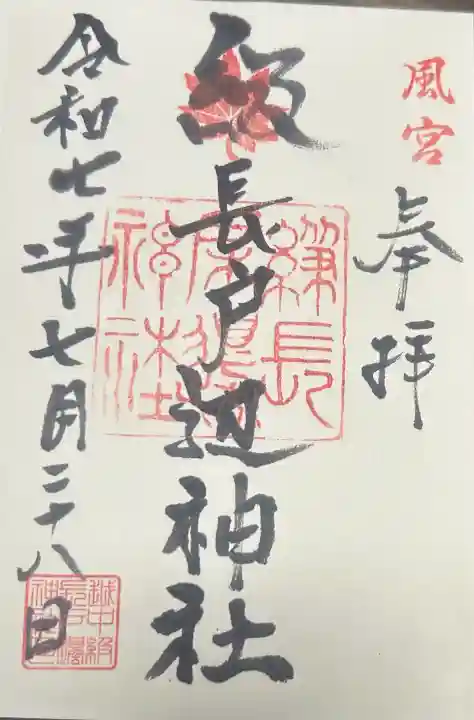 風宮
奉拝
級長戸辺神社
令和七年七月二十八日
越中級
長戸邊
神社印